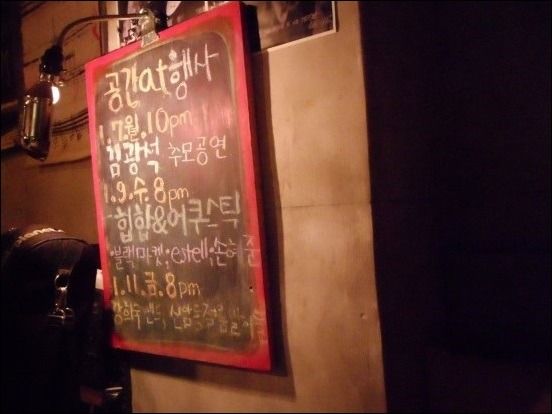 공간at행사
1.7.월.10pm
김광석 추모공연
1.9.수.8pm
힙합&어쿠스틱
·블랙마켓;estell;손혜준
1.11.금.8pm
강희수밴드,